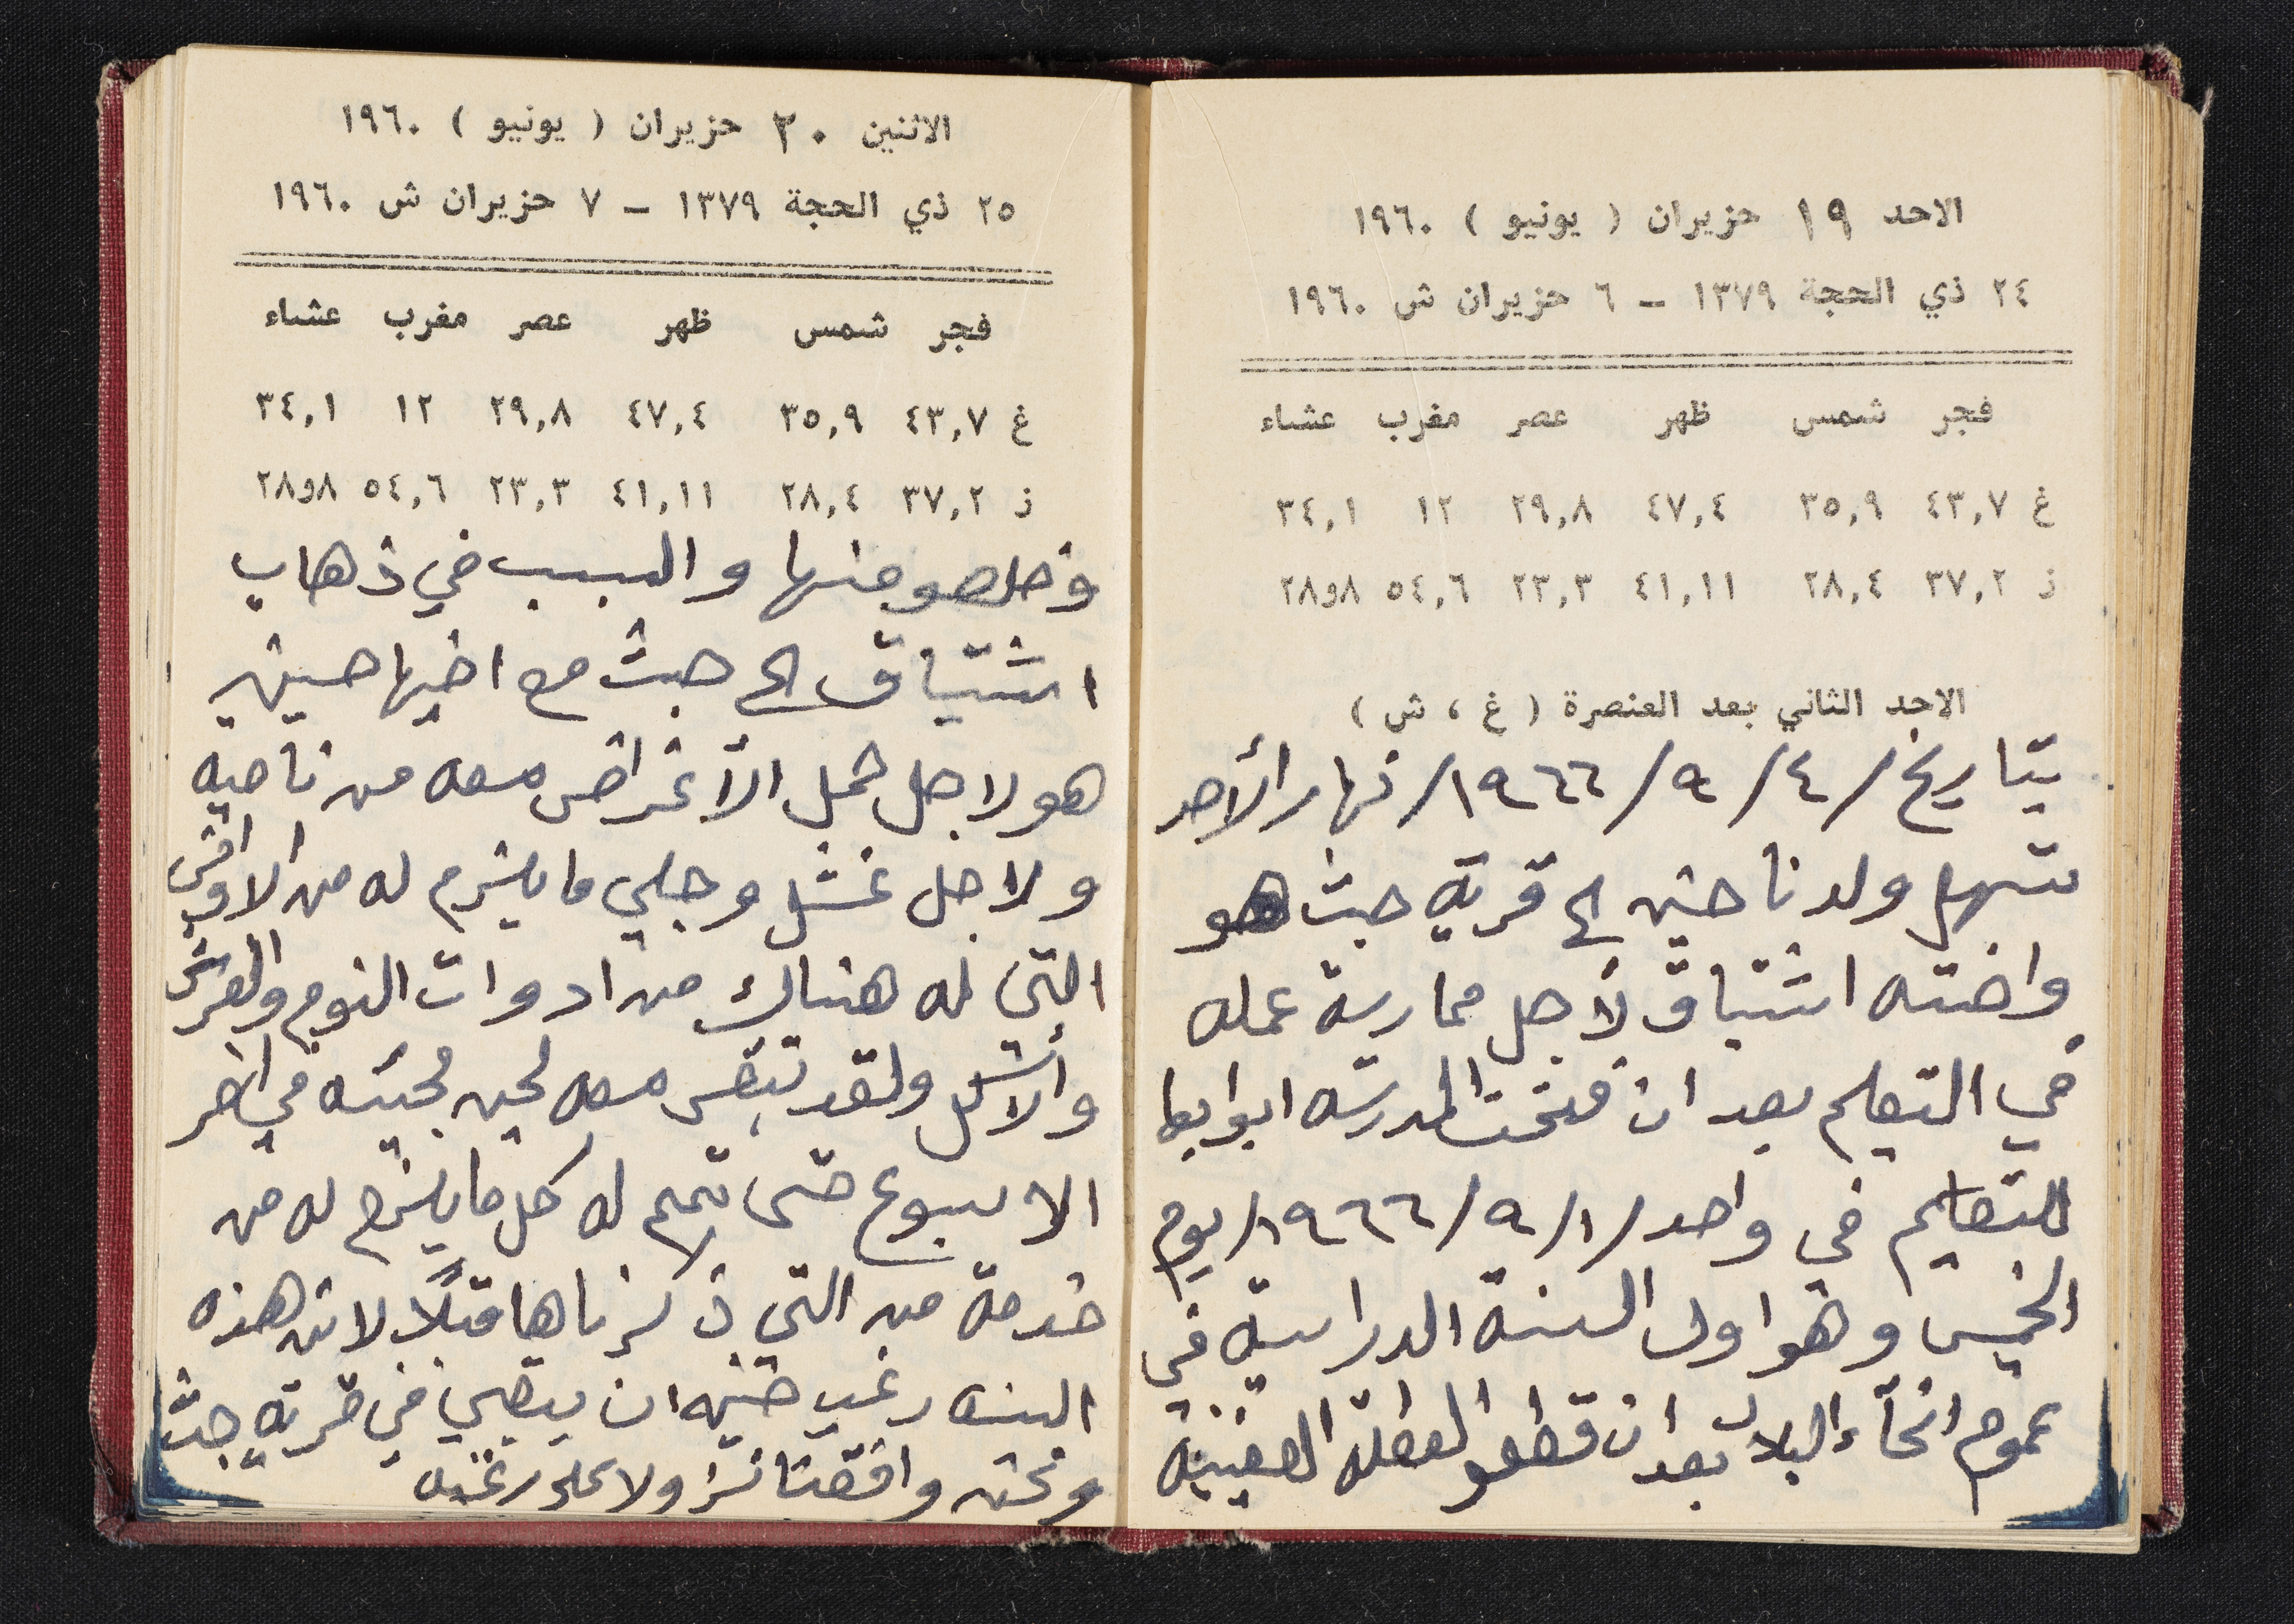 الاحد ١٩ حزيران ( يونيو ) ١٩٦٠
٢٤ ذي الحجة ١٣٧٩ - ٦ حزيران ش ١٩٦٠
فجر شمس ظهر عصر مغرب عشاء
غ ٤٣,٧ ٣٥,٩ ٤٧,٤ ٢٩,٨ ١٢ ٣٤,١
ز ٣٧,٢ ٢٨,٤ ٤١,١١ ٢٣,٣ ٥٤,٦ ٢٨و٨
الاحد الثاني بعد العنصرة ( غ ، ش )
بتاريخ /٤/٩/١٩٦٦/ نهار الأحد
ولدنا حنين الى قرية جث هو
واخته اشتياق لأجل ممارسة عمله
في التعليم بعد ان فتحت المدرسه ابوابها
للتعليم في واحد /١/٩/١٩٦٦/ يوم
الخميس وهو اول السنة الدراسية في
عموم انحآء البلاد بعد ان قطعو العطلة الصيفيية
الاثنين ٢٠ حزيران ( يونيو ) ١٩٦٠
٢٥ ذي الحجة ١٣٧٩ - ٧ حزيران ش ١٩٦٠
فجر شمس ظهر عصر مغرب عشاء
غ ٤٣,٧ ٣٥,٩ ٤٧,٤ ٢٩,٨ ١٢ ٣٤,١
ز ٣٧,٢ ٢٨,٤ ٤١,١١ ٢٣,٣ ٥٤,٦ ٢٨و٨
وخلصو منها والسبب في ذهاب
اشتياق الى جث مع اخيها حسين
هو لاجل حمل الأغراض معه من ناحيه
ولاجل غسل وجلي ما يلزم له من الاواقي
التي له هناك من ادوات النوم والفرش
والأكل ولقد تبقى معه لحين مجيئه في اخر
الاسبوع حتى تمم له كل ما يلزم له من
خدمة من التي ذكرناها قبلاً لان هذه
السنه رغب حنين ان يبقي في قرية جث
ونحن وافقنا نزولا على رغبته